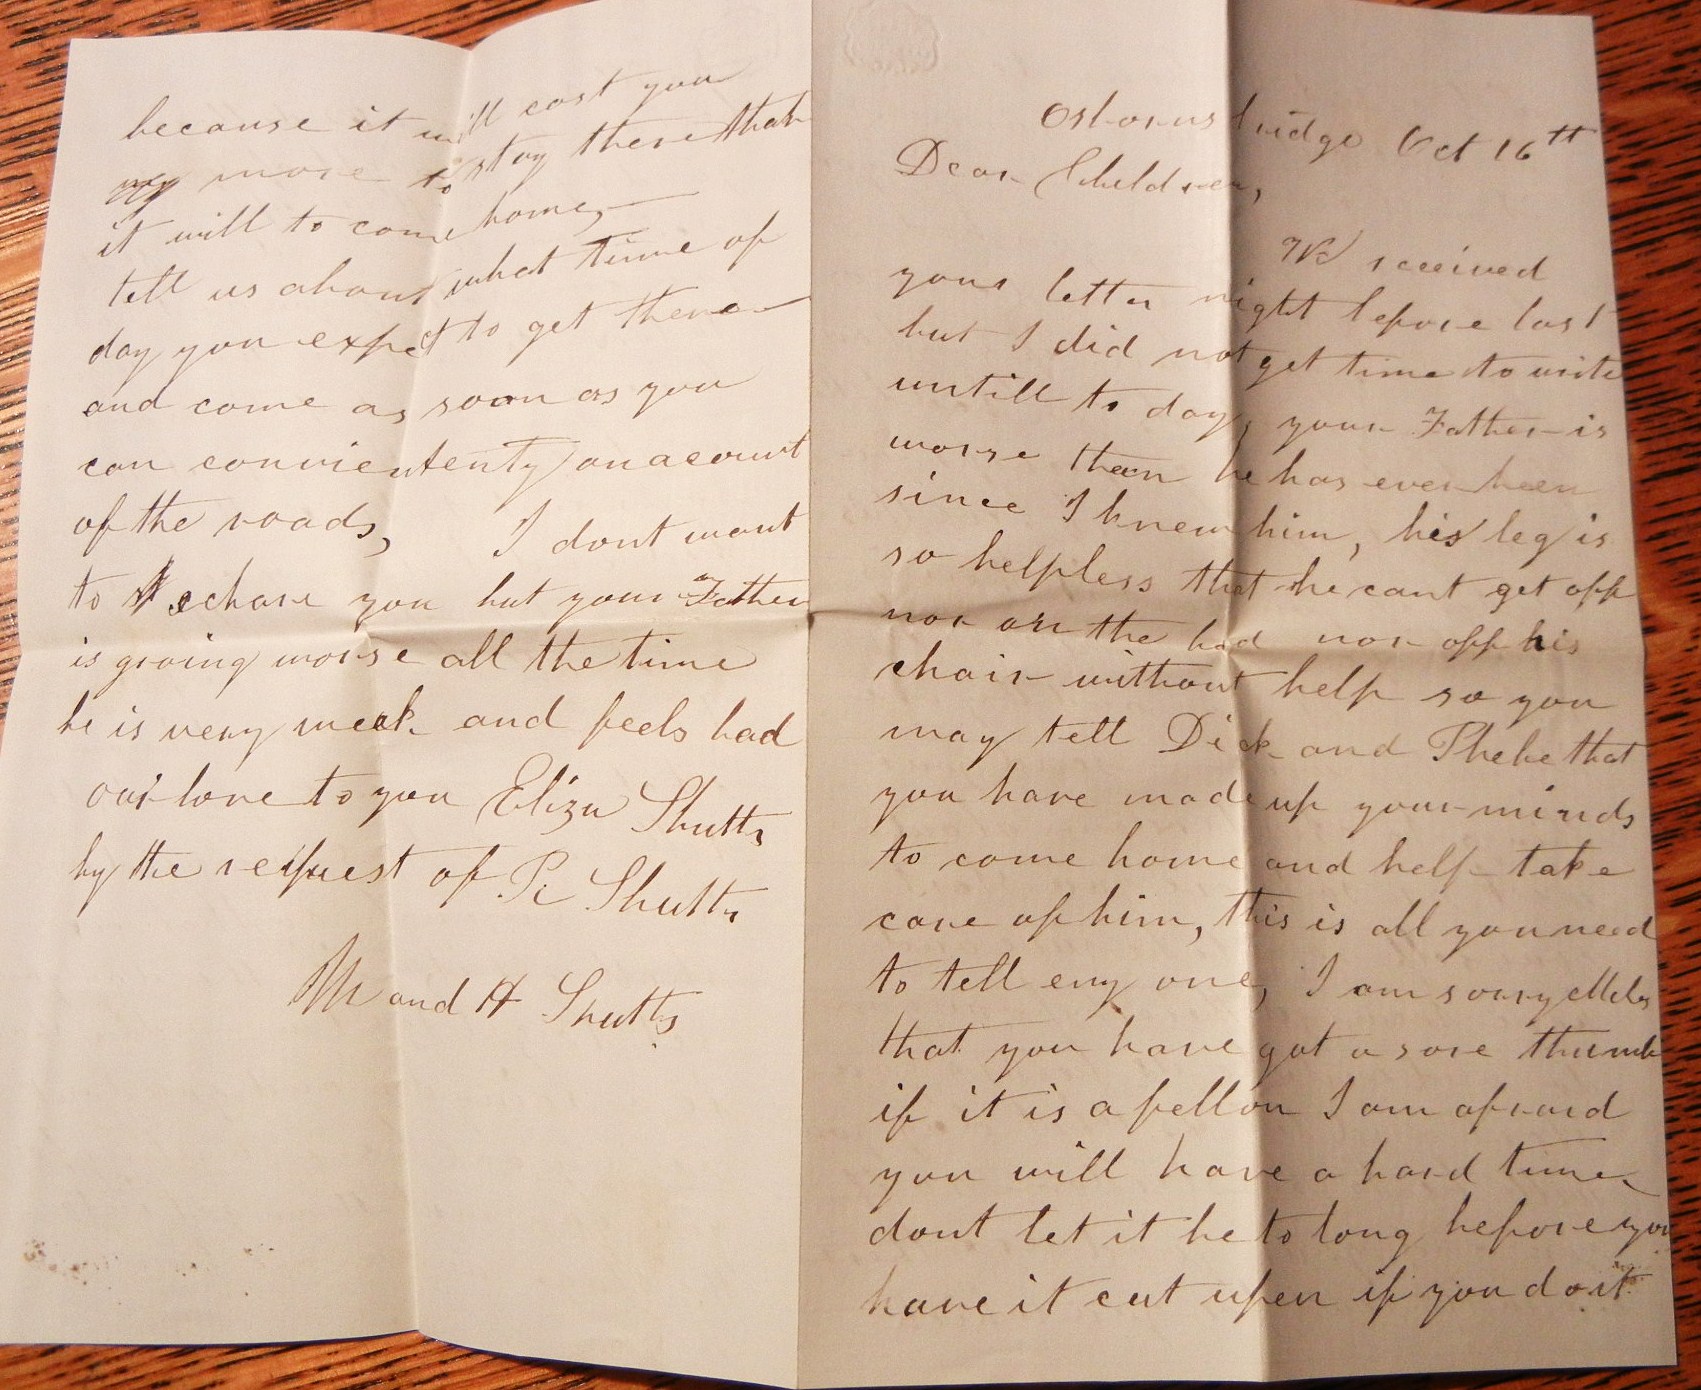 Osbornsbridge Oct 16th
Dear Children,
We received
your letter night before last
but I did not get time to write
untill to day, your Father is
worse then he has ever been
since I knew him, his leg is
so helpless that he cant get off
nor on the bed nor off his
chair without help so you
may tell Dick and Phebe that
you have made up your minds
to come home and help take
care of him, this is all you need
to tell eny one, I am sorry
that you have got a sore thumb
if it is a fellon I am afraid
you will have a hard time
dont let it be to long before you
have it cut open if you do it
because it will cost you
more to stay there than
it will to come home,
tell us about what time of
day you expect to get there
and come as soon as you
can conviententy on acount
of the roads, I dont want
to you but your Father
is groing worse all the time
he is very weak and feels bad
our love to you Eliza Shutts
by the request of R Shutts
M and H Shutts